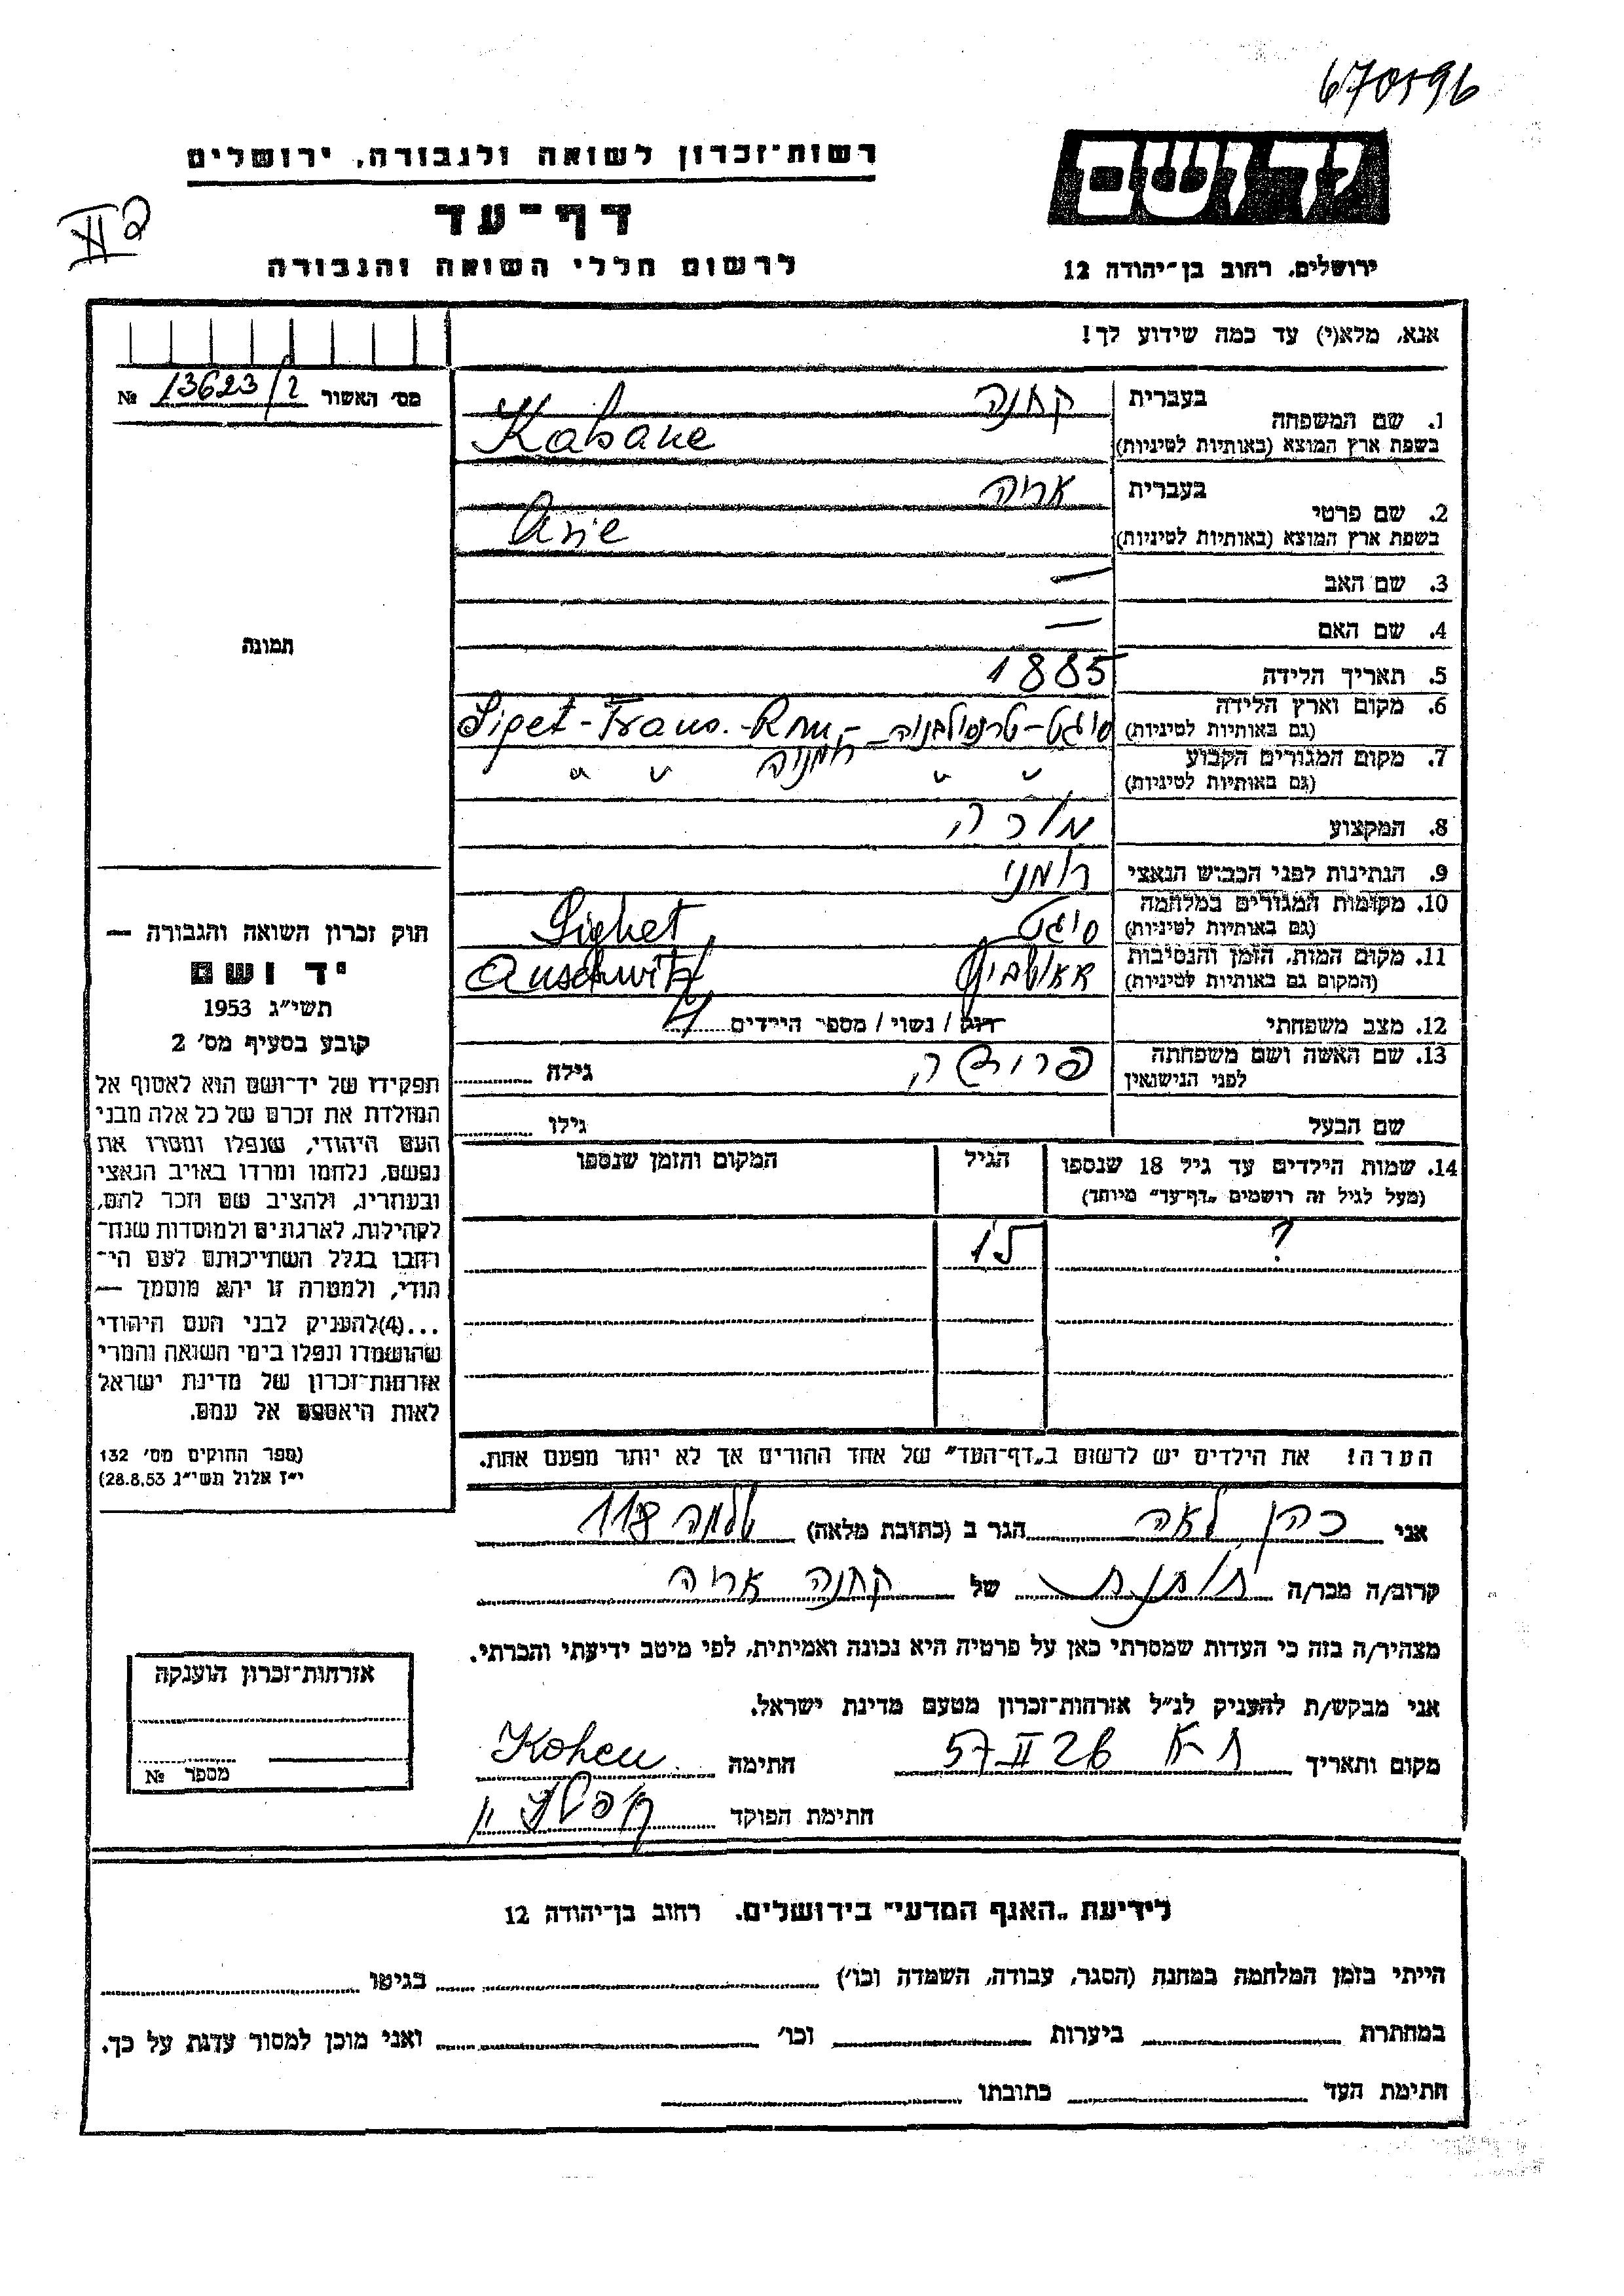 670596
רשות-זכרון לשואה ולגבורה, ירושלים
יד ושם
דף-עד
לרשום חללי השואה והגבורה
ירושלים, רחוב בן-יהודה 12
אנא, מלא(י) עד כמה שידוע לך!
מס' האשור 13623/2 №
1. שם המשפחה בעברית קחנה
בשפת ארץ המוצא (באותיות לטיניות) Kahane
2. שם פרטי בעברית אריה
בשפת ארץ המוצא (באותיות לטיניות) Arie
3. שם האב —
4. שם האם —
תמונה
5. תאריך הלידה 1885
6. מקום וארץ הלידה (גם באותיות לטיניות) סיגט-טרנסילבניה- רומניה Siget-Trans.-Rom
7. מקום המגורים הקבוע (גם באותיות לטיניות) " " " "
8. המקצוע מורה
9. הנתינות לפני הכבוש הנאצי רומני
10. מקומות המגורים במלחמה (גם באותיות לטיניות) סיגט Sighet
11. מקום המות, הזמן והנסיבות (המקום גם באותיות לטיניות) אאושביץ Auschwitz
12. מצב משפחתי רווק / נשוי / מספר הילדים 4
13. שם האשה ושם משפחתה לפני הנישואין גילה
שם הבעל גילו
14. שמות הילדים עד גיל 18 שנספו הגיל המקום והזמן שנספו
(מעל לגיל זה רושמים „דף-עד" מיוחד)
? 15
הערה! את הילדים יש לרשום ב„דף-העד" של אחד ההורים אך לא יותר מפעם אחת.
חוק זכרון השואה והגבורה —
יד ושם
תשי"ג 1953
קובע בסעיף מס' 2
תפקידו של יד-ושם הוא לאסוף אל
המולדת את זכרם של כל אלה מבני
העם היהודי, שנפלו ומסרו את
נפשם, נלחמו ומרדו באויב הנאצי
ובעוזריו, ולהציב שם וזכר להם,
לקהילות, לארגונים ולמוסדות שנח-
רבו בגלל השתייכותם לעם הי-
הודי, ולמטרה זו יהא מוסמך —
...(4)להעניק לבני העם היהודי
שהושמדו ונפלו בימי השואה והמרי
אזרחות-זכרון של מדינת ישראל
לאות היאספם אל עמם.
(ספר החוקים מס' 132
י"ז אלול תשי"ג 28.8.53)
אני כהן לאה הגר ב (כתובת מלאה) שלמה 118
קרוב/ה מכר/ה של קחנה אריה
מצהיר/ה בזה כי העדות שמסרתי כאן על פרטיה היא נכונה ואמיתית, לפי מיטב ידיעתי והכרתי.
אני מבקש/ת להעניק לנ"ל אזרחות-זכרון מטעם מדינת ישראל.
מקום ותאריך ת-א 26 II 57 חתימה Kohen
חתימת הפוקד
אזרחות-זכרון הוענקה
מספר №
לידיעת „האגף המדעי" בירושלים, רחוב בן-יהודה 12
הייתי בזמן המלחמה במחנה (הסגר, עבודה, השמדה וכו') בגיטו
במחתרת ביערות וכו' ואני מוכן למסור עדות על כך.
חתימת העד כתובתו